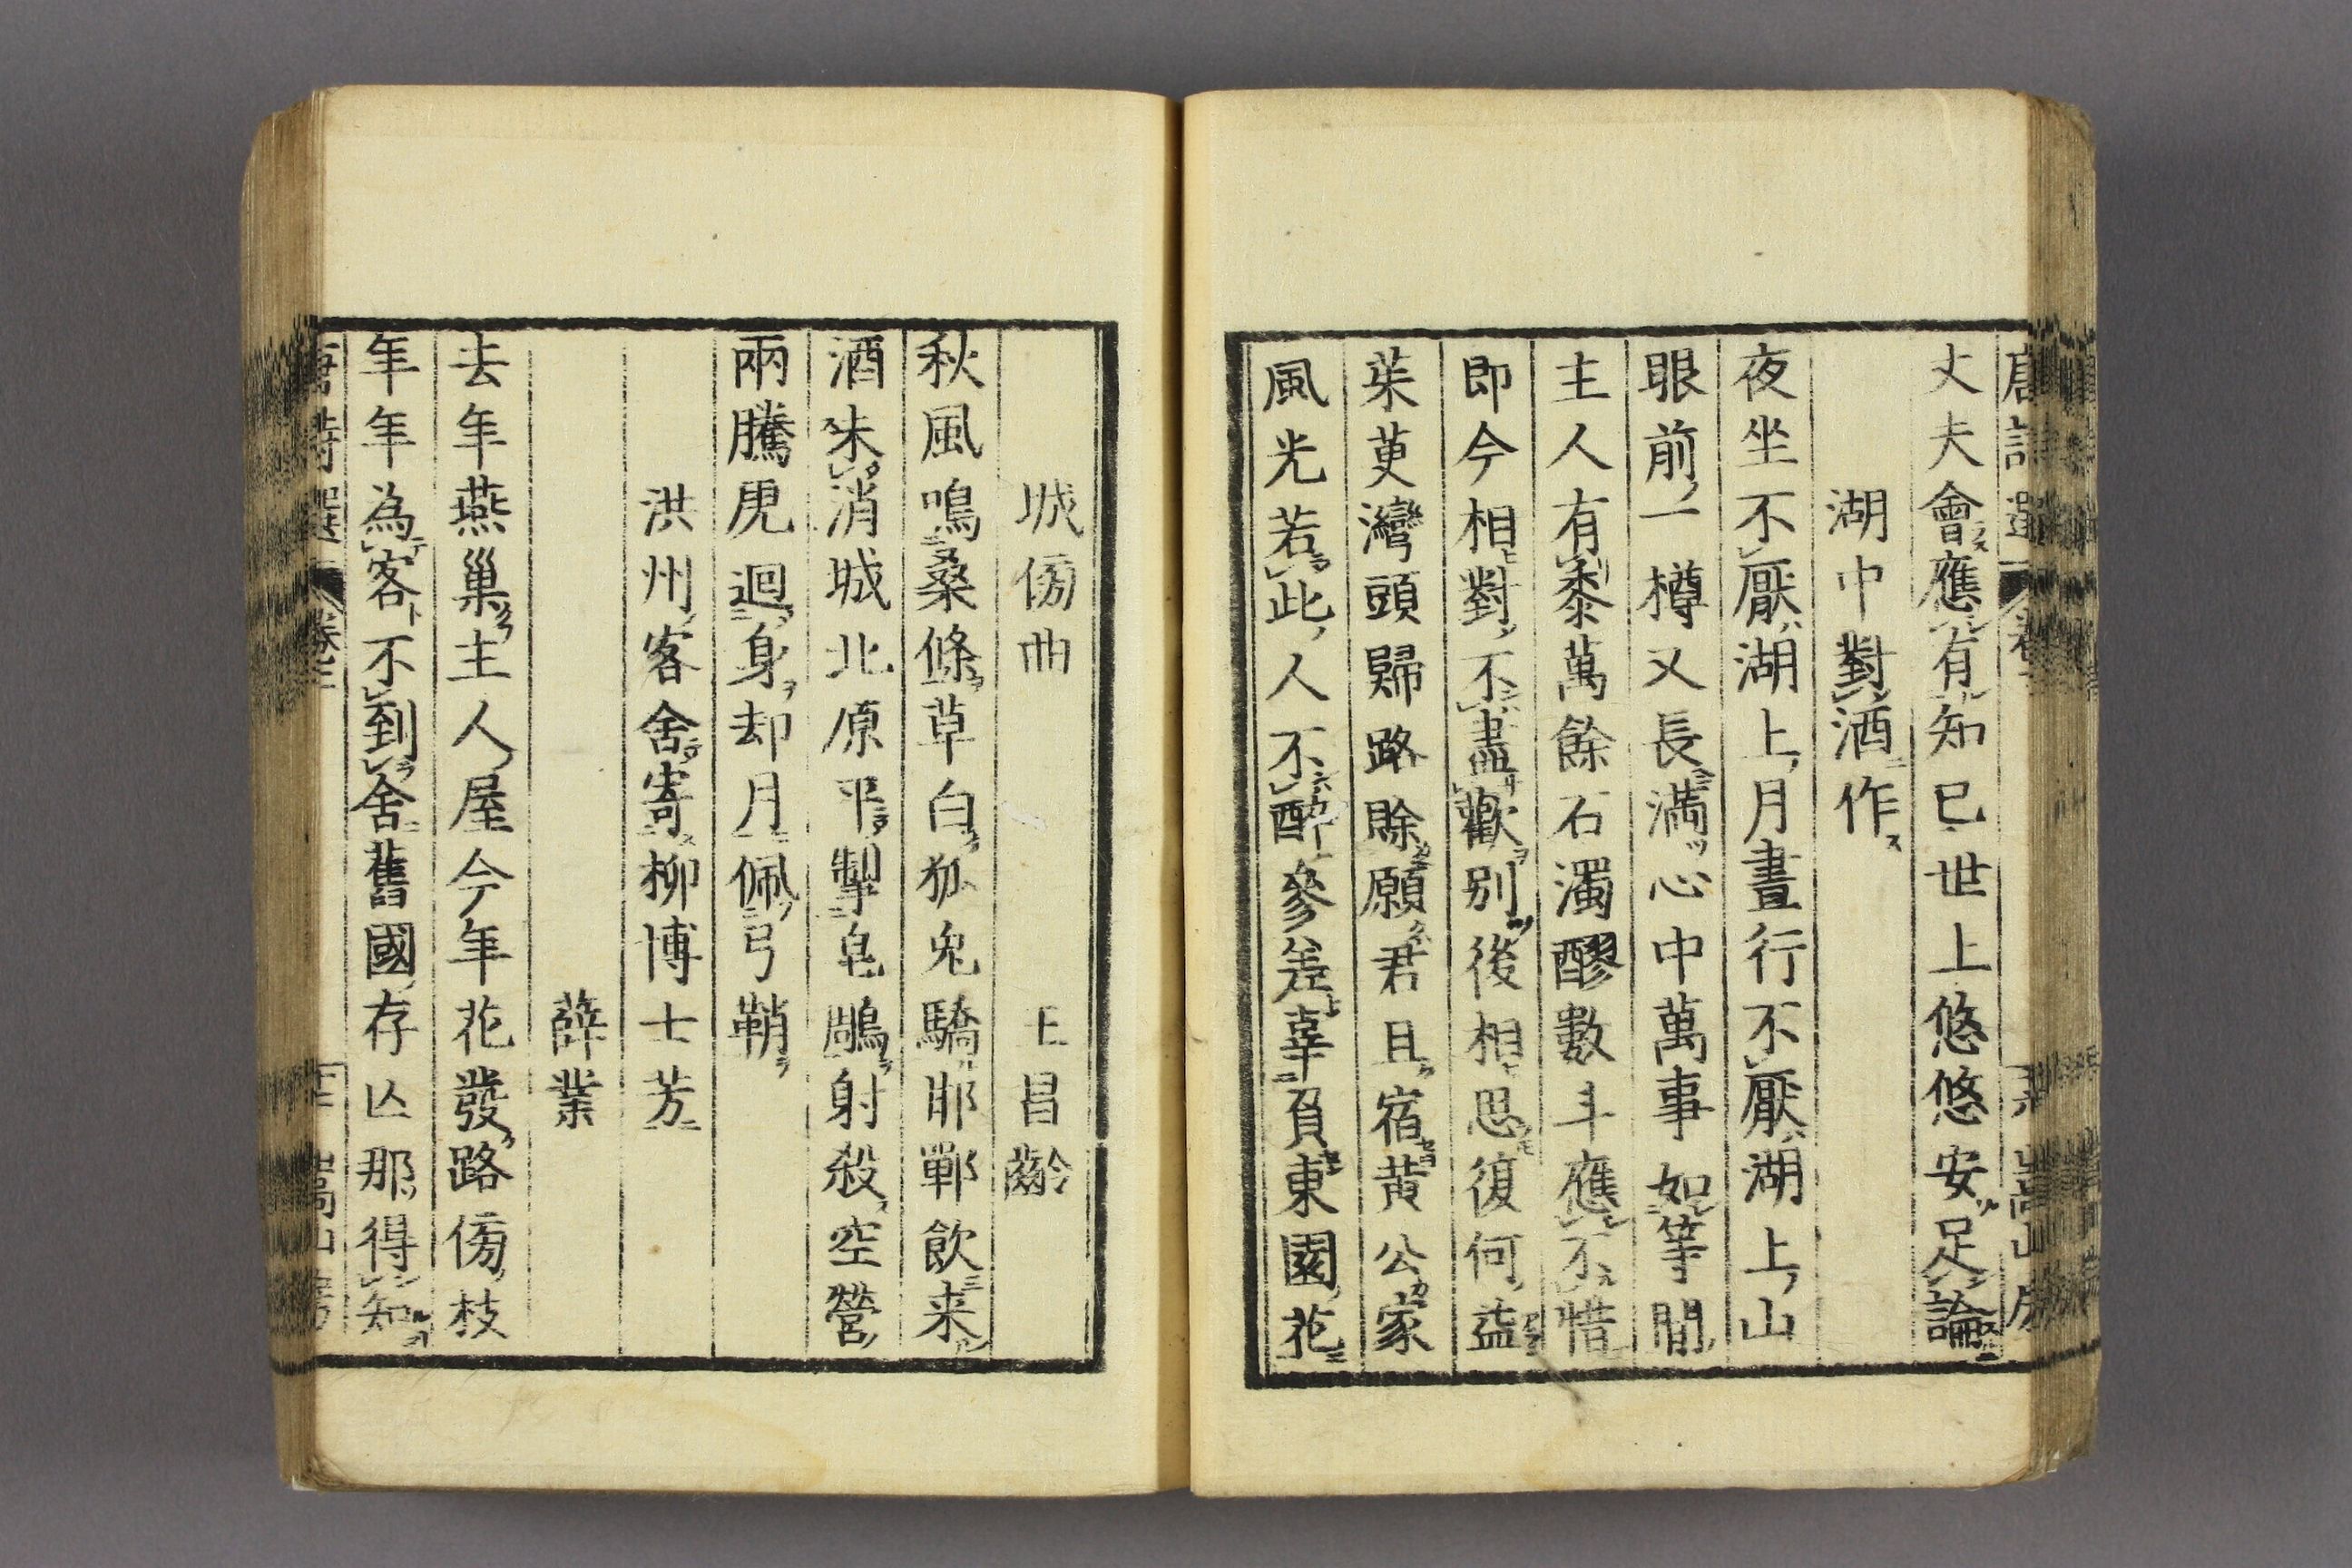 丈夫會應有知己世上悠悠安足論
湖中對酒作
夜坐不厭湖上月晝行不厭湖上山
眼前一樽又長滿心中萬事如等閒
主人有黍萬餘石濁醪數斗應不惜
即今相對不盡歡別後相思復何益
茱萸灣頭歸路賒願君且宿黃公家
風光若此人不醉參差辜負東園花
城傍曲 王昌齡
秋風鳴桑條草白狐兔驕邯鄲飲来
酒未消城北原平掣皂鵰射殺空營
兩騰虎迴身却月佩弓鞘
洪州客舍寄柳博士芳
薛業
去年燕巢主人屋今年花發路傍枝
年年為客不到舍舊國存亾那得知
唐詩選 卷二